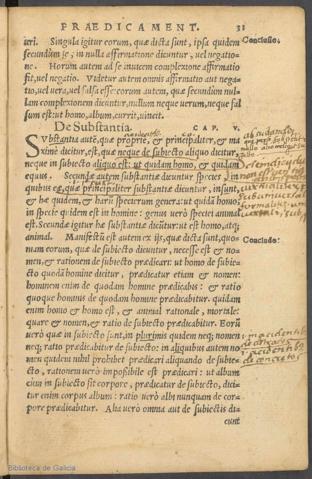 PRÆDICAMENT. 31
teri. Singula igitur eorum, quæ dicta sunt, ipsa quidem
secundum se, in nulla affirmatione dicuntur, vel negatio-
ne. Horum autem ad se inuicem complexione affirmatio
fit, vel negatio. Videtur autem omnis affirmatio aut nega-
tio, vel vera, vel falsa esse: eorum autem, quæ secundum nul-
lam complexionem dicuntur, nullum neque verum, neque fal
sum est: vt homo, album, currit, vincit.
Conclusio.
De Substantia. CAP. V.
SVbstantia autē, quæ proprie, & principaliter, & ma
xime dicitur, est, quæ neque de subiecto aliquo dicitur,
neque in subiecto aliquo est: vt quidam homo, & quidam
equus. Secundæ autem substantiæ dicuntur species in
quibus eæ, quæ principaliter substantiæ dicuntur, insunt,
& hæ quidem, & harū specierum genera: vt quidā homo
in specie quidem est in homine: genus verò speciei animal
est. Secundæ igitur hæ substantiæ dicūtur: vt est homo, atq;
animal. Manifestū est autem ex ijs, quæ dicta sunt, quo-
niam eorum, quæ de subiecto dicuntur, necesse est & no-
men, & rationem de subiecto prædicari: vt homo de subie-
cto quodā homine dicitur, prædicatur etiam & nomen:
hominem enim de quodam homine prædicabis: & ratio
quoque hominis de quodam homine prædicabitur. quidam
enim homo & homo est, & animal rationale, mortale:
quare & nomen, & ratio de subiecto prædicabitur. Eorū
verò quæ in subiecto sunt, in plurimis quidem neq; nomen
neq; ratio prædicabitur de subiecto: in aliquibus autem no
men quidem nihil prohibet prædicari aliquando de subie-
cto, rationem verò impossibile est prædicari: vt album
cùm in subiecto sit corpore, prædicatur de subiecto, dici-
tur enim corpus album: ratio verò albi nunquam de cor-
pore prædicabitur. Alia verò omnia aut de subiectis di-
cunt
Conclusio.
Biblioteca de Galicia